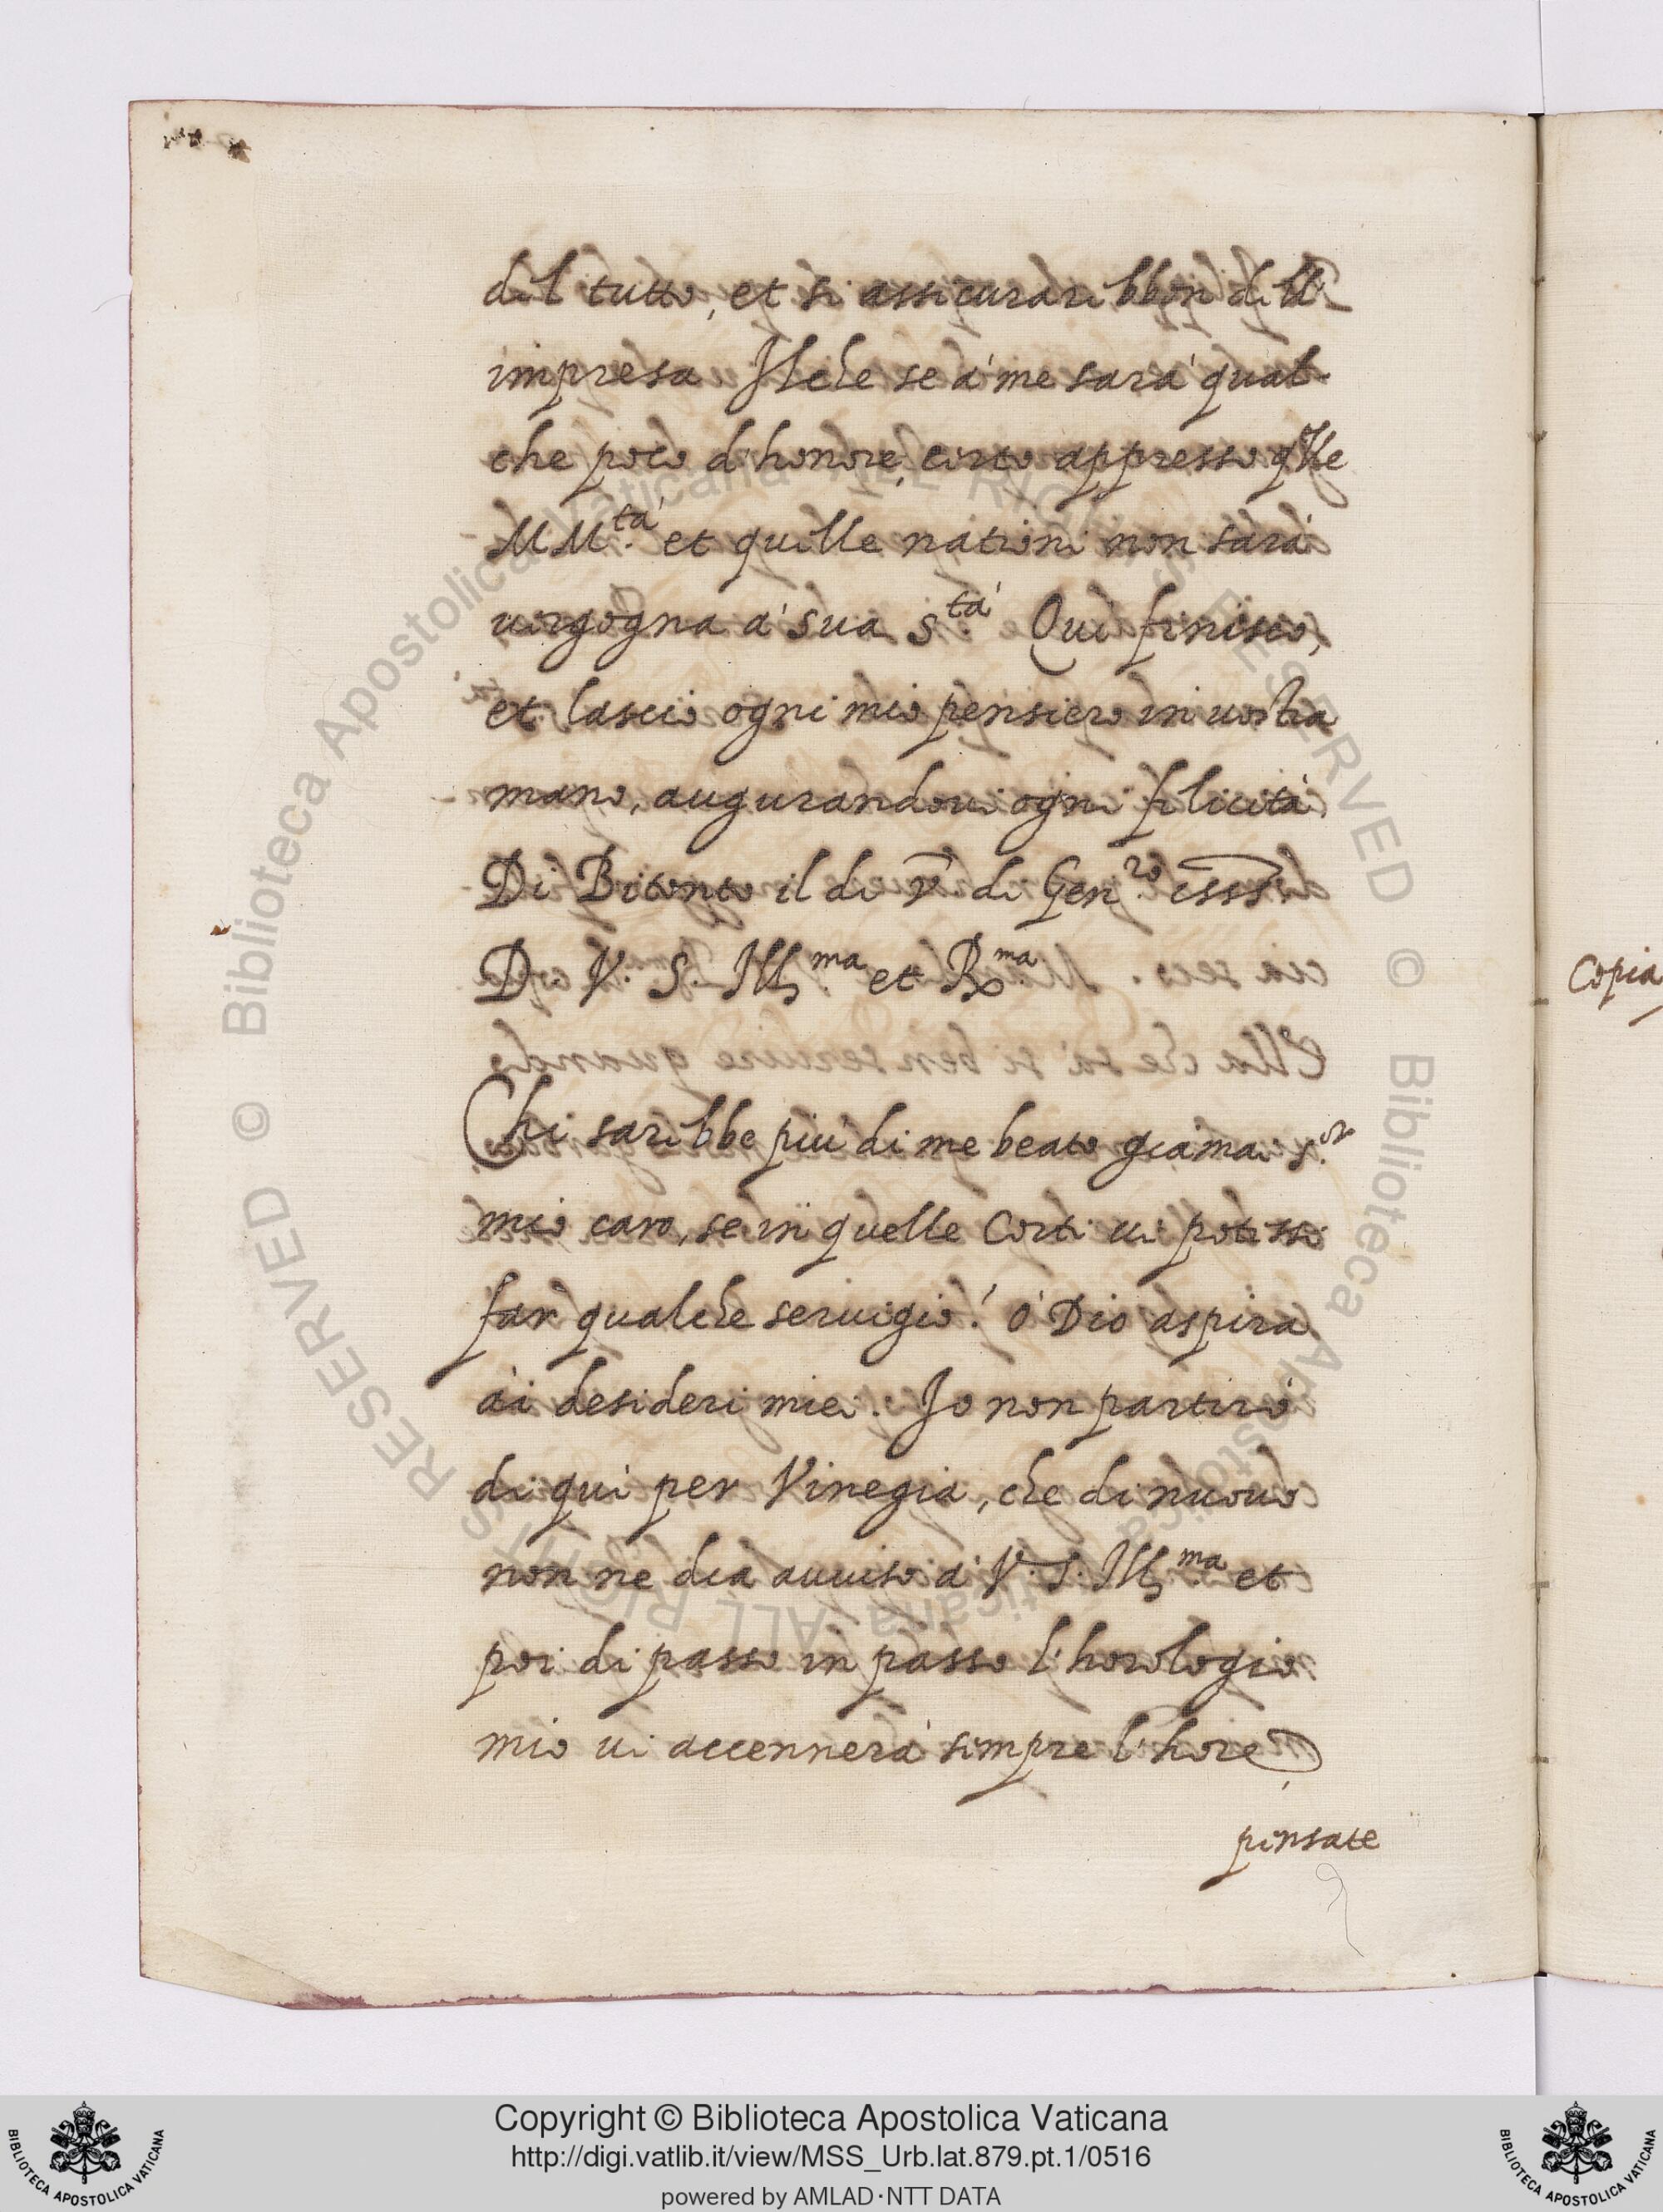 del tutto, et si assicurarebbon dell'
impresa Ilche se à me sarà qual-
che poco d'honore, certo appresso q̃lle
MM.tà et quelle nationi non sarà
uergogna à sua S.tà Qui finisco,
et lascio ogni mio pensiero in uostra
mano, augurandoui ogni felicità
Di Bitonto il dì v di Gen.ro
D. V. S. Ill.ma et R.ma
Chi sarebbe piu di me beato giamai s.or
mio caro, se in quelle Corti ui potessi
far qualche seruigio! ò Dio aspira
ài desideri miei. Io non partirò
di quì per Vinegia, che di nuouo
non ne dia auuiso à V. S. Ill.ma et
poi di passo in passo l'horologio
mio ui accennerà sempre l'hore,
pensate
Copia
Copyright © Biblioteca Apostolica Vaticana
http://digi.vatlib.it/view/MSS_Urb.lat.879.pt.1/0516
powered by AMLAD·NTT DATA
BIBLIOTECA APOSTOLICA VATICANA
BIBLIOTECA APOSTOLICA VATICANA
© Biblioteca Apostolica Vaticana ALL RIGHTS RESERVED © Biblioteca Apostolica Vaticana ALL RIGHTS RESERVED